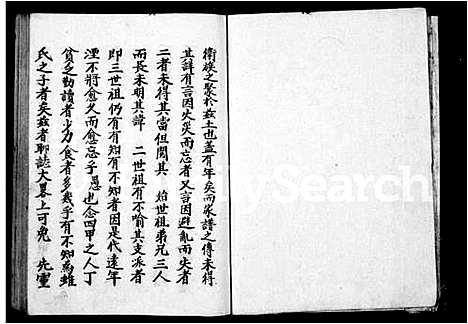 衛族之聚於兹土也蓋有年矣而家譜之傳未得
其詳有言因火災而忘者又言因避亂而失者
二者未得其當但聞其 始世祖弟兄三人
而長未明其諱 二世祖有不喻其支派者
即三世祖仍有有知有不知者因是代遠年
湮不將愈久而愈忘乎愚也念四甲之人丁
貧乏勤讀者少力食者多幾乎有不知為誰
氏之子者矣兹者聊誌大畧上可免 先靈
Search